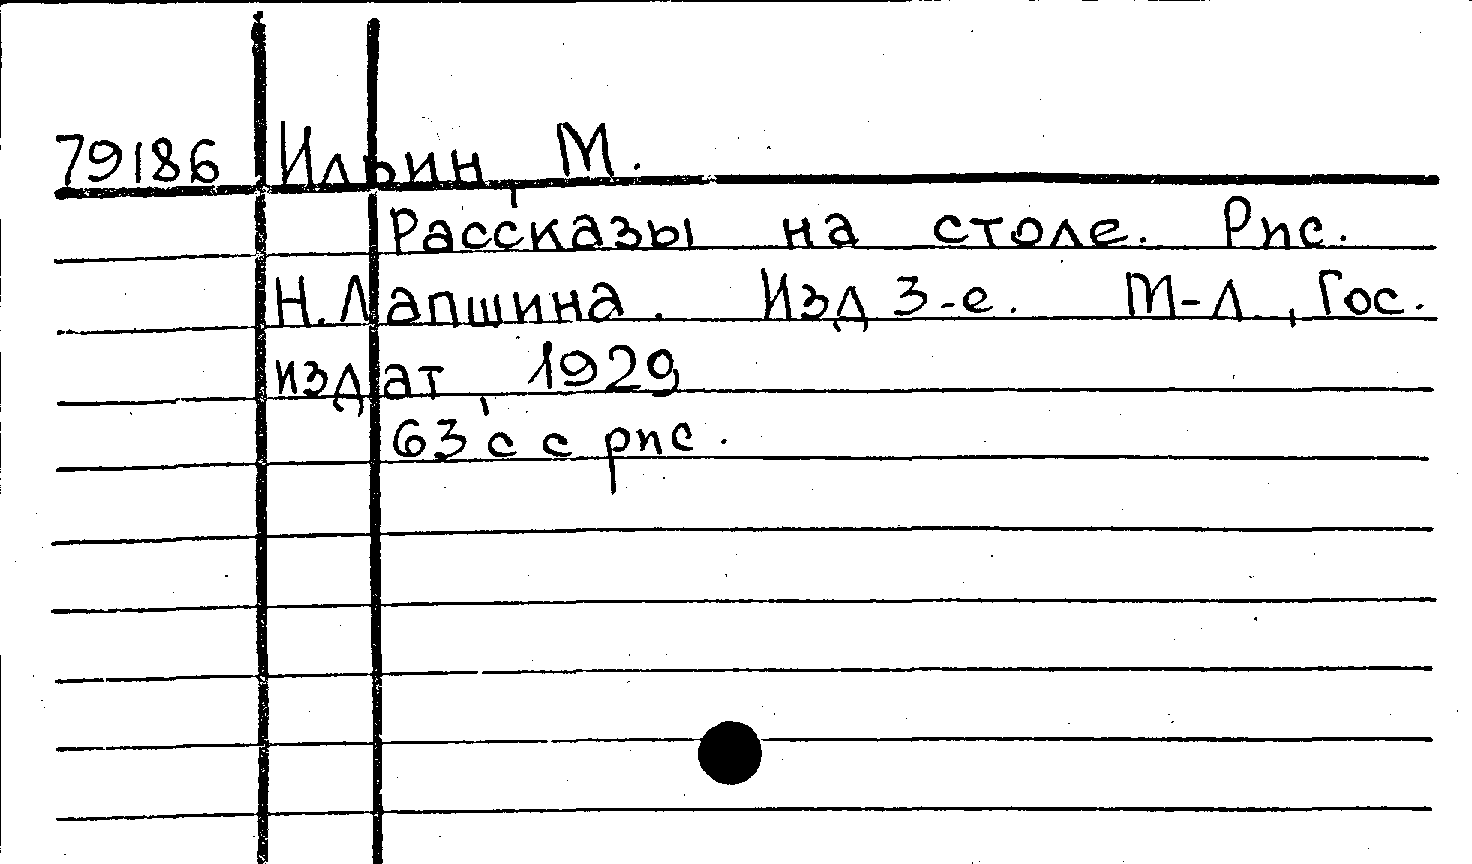 79186 Ильин, М.
Рассказы на столе. Рис.
Н. Лапшина. Изд 3-е. М-Л., Гос.
издат, 1929
63 с с рис.